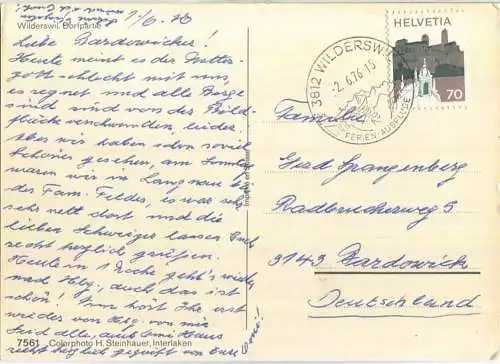 Wilderswil. Dorfpartie
1/6. 76
Liebe Bardowicker!
Heute meint es der Wetter-
gott schlecht mit uns,
es regnet und alle Berge
sind von der Bild-
fläche verschwunden, leider,
aber wir haben schon soviel
Schönes gesehen, am Sonntag
waren wir in Langnau b.
der Fam. Feldes, es war sehr
sehr nett dort und die
lieben Schweizer lassen Euch
recht herzlich grüßen.
Heute in 1 Woche geht's wieder
nach Hbg., auch das ist
schön! Nun hört Ihr erst
wieder von Hbg. von mir.
Seid alle, aus
recht herzlich gegrüßt von Eurer
7561 Colorphoto H. Steinhauer, Interlaken
HELVETIA
70
3812 WILDERSWIL
-2. 6. 76-15
FERIEN
Familie
Gerd Spangenberg
Radbrucherweg 5
3143 Bardowick
Deutschland